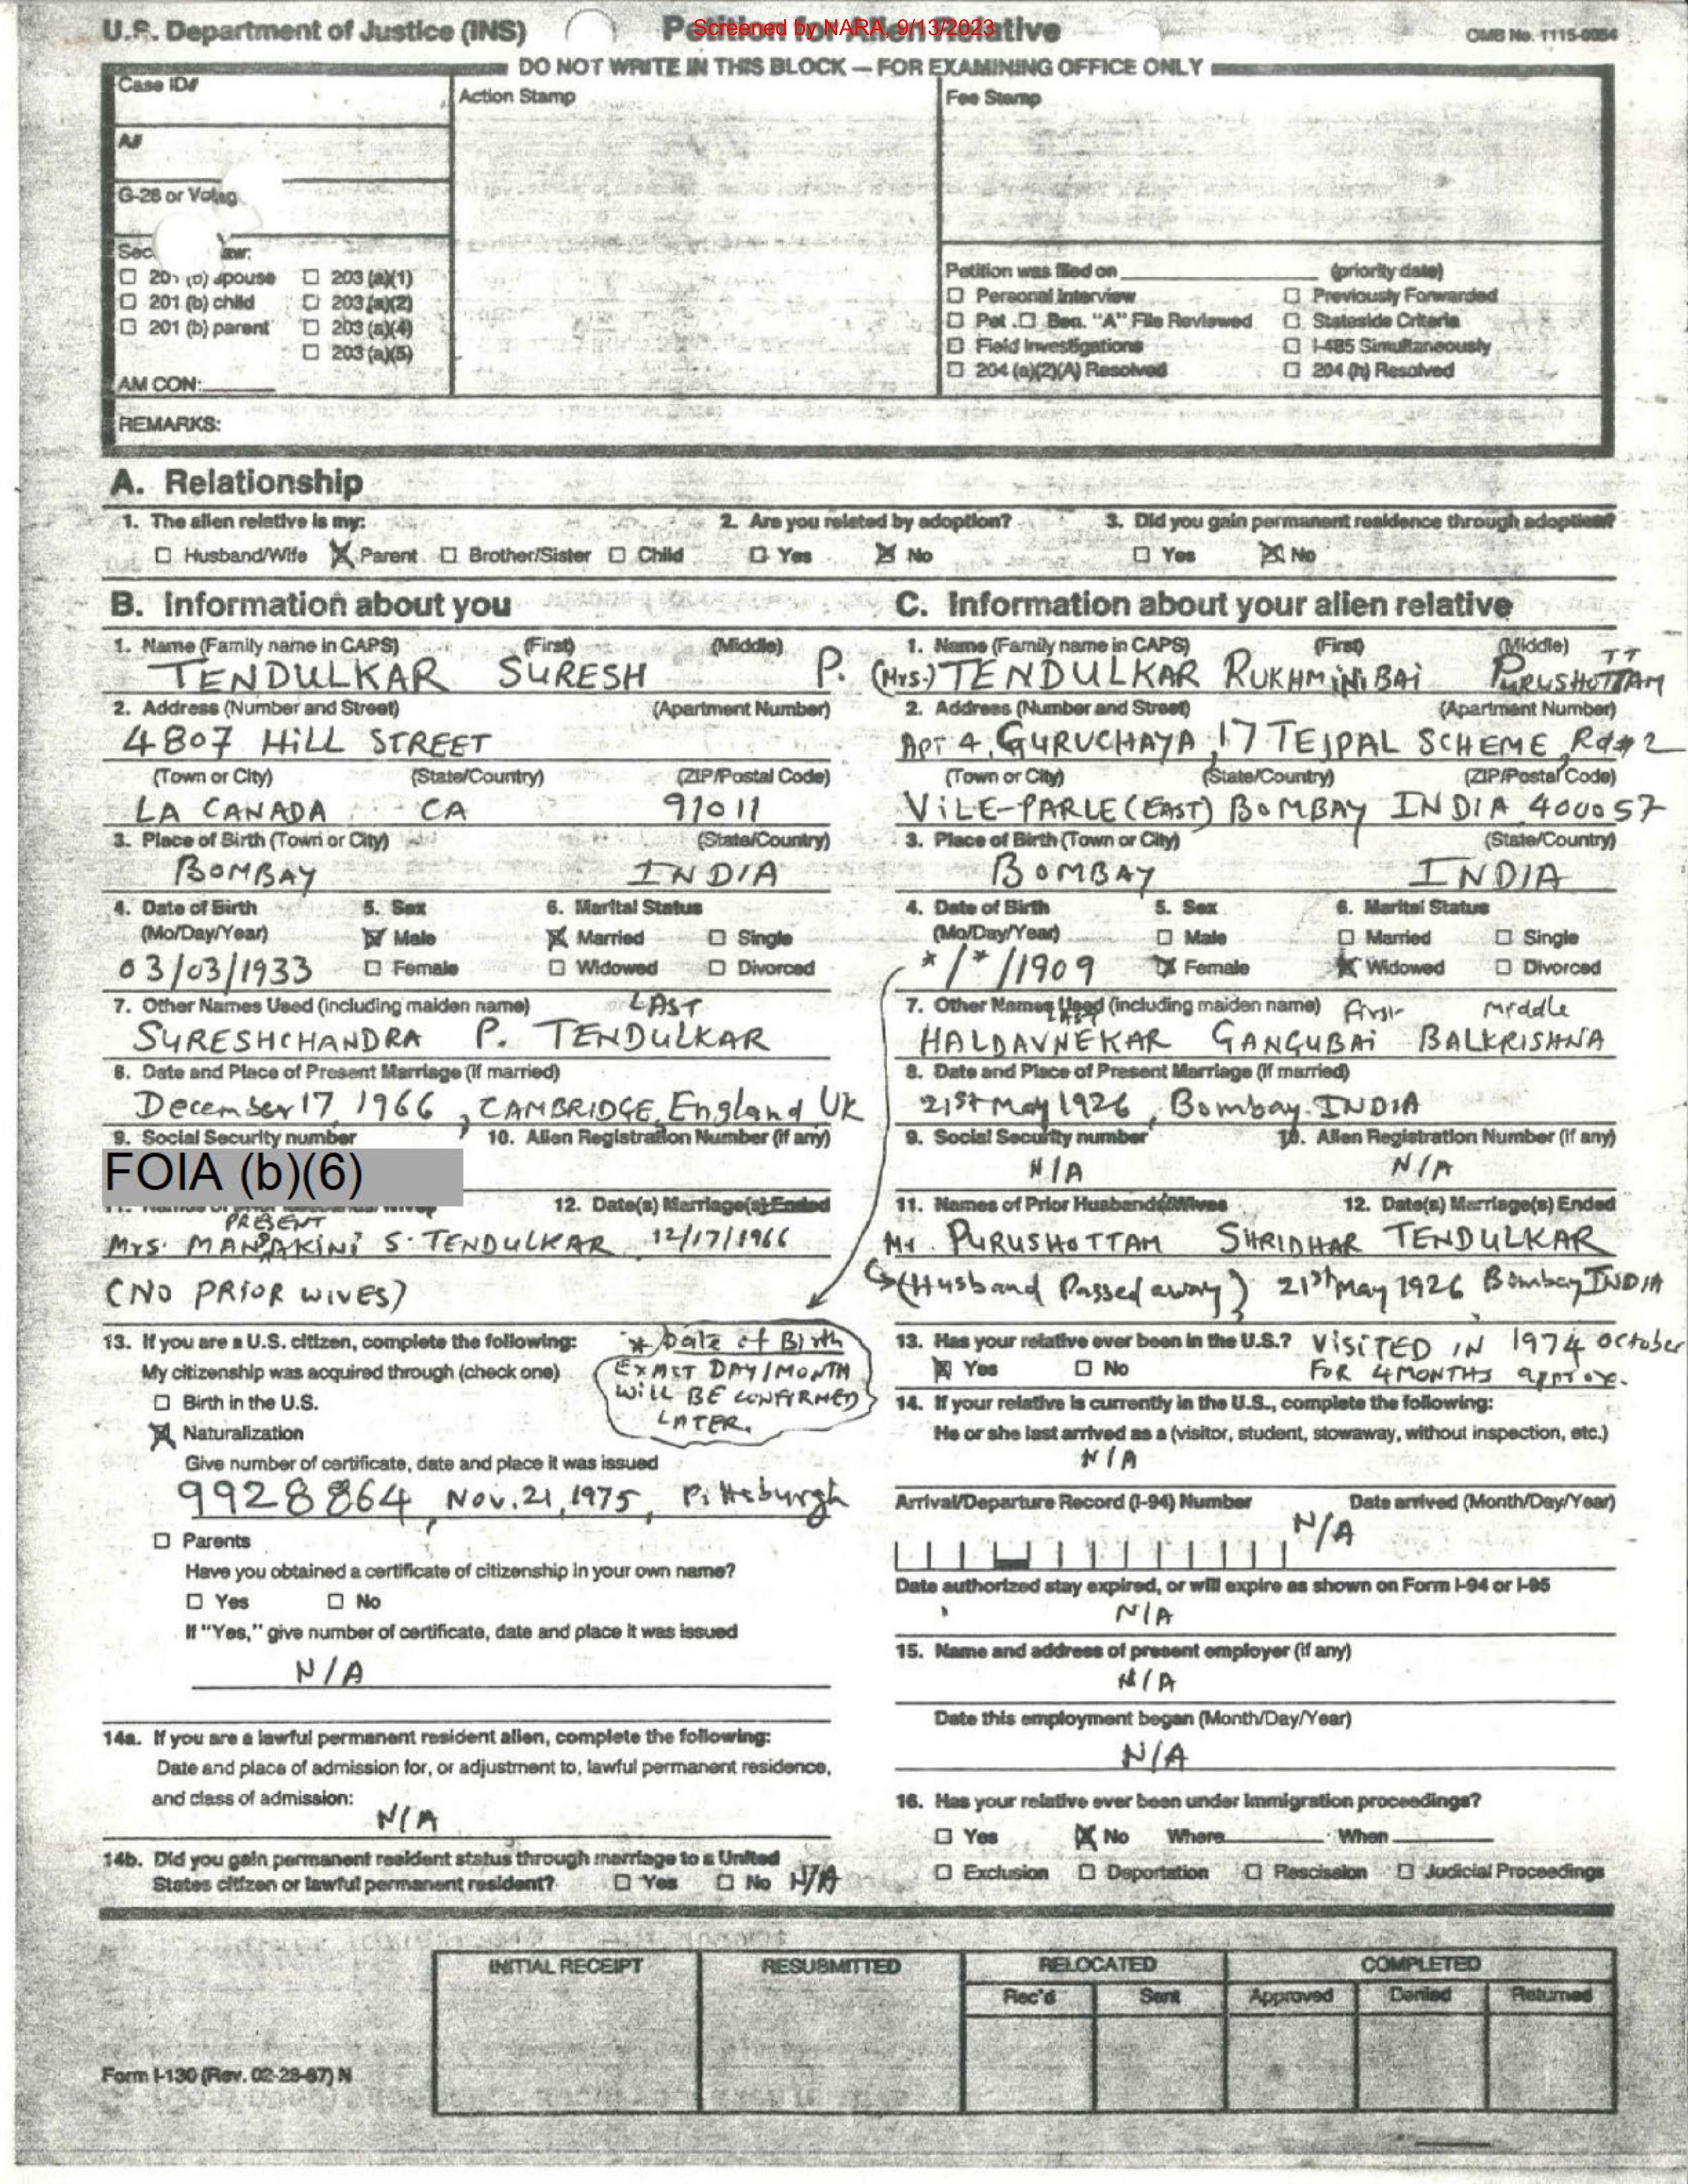 U.S. Department of Justice (INS)
Petition for Alien Relative
Screened by NARA, 9/13/2023
OMB No. 1115-0054
DO NOT WRITE IN THIS BLOCK — FOR EXAMINING OFFICE ONLY
Case ID#
Action Stamp
Fee Stamp
A#
G-28 or Volag
☐ 201 (b) spouse ☐ 203 (a)(1)
☐ 201 (b) child ☐ 203 (a)(2)
☐ 201 (b) parent ☐ 203 (a)(4)
☐ 203 (a)(5)
AM CON:
Petition was filed on (priority date)
☐ Personal Interview ☐ Previously Forwarded
☐ Pet. ☐ Ben. "A" File Reviewed ☐ Stateside Criteria
☐ Field Investigations ☐ I-485 Simultaneously
☐ 204 (a)(2)(A) Resolved ☐ 204 (h) Resolved
REMARKS:
A. Relationship
1. The alien relative is my:
☐ Husband/Wife ☒ Parent ☐ Brother/Sister ☐ Child
2. Are you related by adoption?
☐ Yes ☒ No
3. Did you gain permanent residence through adoption?
☐ Yes ☒ No
B. Information about you
1. Name (Family name in CAPS) (First) (Middle)
TENDULKAR SURESH P.
2. Address (Number and Street) (Apartment Number)
4807 HILL STREET
(Town or City) (State/Country) (ZIP/Postal Code)
LA CANADA CA 91011
3. Place of Birth (Town or City) (State/Country)
BOMBAY INDIA
4. Date of Birth 5. Sex 6. Marital Status
(Mo/Day/Year) ☒ Male ☒ Married ☐ Single
03/03/1933 ☐ Female ☐ Widowed ☐ Divorced
7. Other Names Used (including maiden name) LAST
SURESHCHANDRA P. TENDULKAR
8. Date and Place of Present Marriage (if married)
December 17, 1966, CAMBRIDGE, England UK
9. Social Security number 10. Alien Registration Number (if any)
FOIA (b)(6)
12. Date(s) Marriage(s) Ended
PRESENT
Mrs. MANDAKINI S. TENDULKAR 12/17/1966
(NO PRIOR WIVES)
13. If you are a U.S. citizen, complete the following:
My citizenship was acquired through (check one)
☐ Birth in the U.S.
☒ Naturalization
* Date of Birth
EXACT DAY/MONTH
WILL BE CONFIRMED
LATER.
Give number of certificate, date and place it was issued
9928864, Nov. 21, 1975, Pittsburgh
☐ Parents
Have you obtained a certificate of citizenship in your own name?
☐ Yes ☐ No
If "Yes," give number of certificate, date and place it was issued
N/A
14a. If you are a lawful permanent resident alien, complete the following:
Date and place of admission for, or adjustment to, lawful permanent residence,
and class of admission:
N/A
14b. Did you gain permanent resident status through marriage to a United
States citizen or lawful permanent resident? ☐ Yes ☐ No N/A
C. Information about your alien relative
1. Name (Family name in CAPS) (First) (Middle)
TT
(Mrs.) TENDULKAR RUKHMINIBAI PURUSHOTTAM
2. Address (Number and Street) (Apartment Number)
APT 4, GURUCHAYA, 17 TEJPAL SCHEME, Rd#2
(Town or City) (State/Country) (ZIP/Postal Code)
VILE-PARLE (EAST) BOMBAY INDIA 400057
3. Place of Birth (Town or City) (State/Country)
BOMBAY INDIA
4. Date of Birth 5. Sex 6. Marital Status
(Mo/Day/Year) ☐ Male ☐ Married ☐ Single
*/*/1909 ☒ Female ☒ Widowed ☐ Divorced
7. Other Names Used (including maiden name) First Middle
LAST
HALDAVNEKAR GANGUBAI BALKRISHNA
8. Date and Place of Present Marriage (if married)
21st May 1926, Bombay. INDIA
9. Social Security number 10. Alien Registration Number (if any)
N/A N/A
11. Names of Prior Husbands/Wives 12. Date(s) Marriage(s) Ended
Mr. PURUSHOTTAM SHRIDHAR TENDULKAR
(Husband Passed away) 21st May 1926 Bombay INDIA
13. Has your relative ever been in the U.S.? VISITED IN 1974 October
☒ Yes ☐ No FOR 4 MONTHS approx.
14. If your relative is currently in the U.S., complete the following:
He or she last arrived as a (visitor, student, stowaway, without inspection, etc.)
N/A
Arrival/Departure Record (I-94) Number Date arrived (Month/Day/Year)
N/A
Date authorized stay expired, or will expire as shown on Form I-94 or I-95
N/A
15. Name and address of present employer (if any)
N/A
Date this employment began (Month/Day/Year)
N/A
16. Has your relative ever been under immigration proceedings?
☐ Yes ☒ No Where When
☐ Exclusion ☐ Deportation ☐ Rescission ☐ Judicial Proceedings
INITIAL RECEIPT RESUBMITTED RELOCATED COMPLETED
Rec'd Sent Approved Denied Returned
Form I-130 (Rev. 02-28-87) N